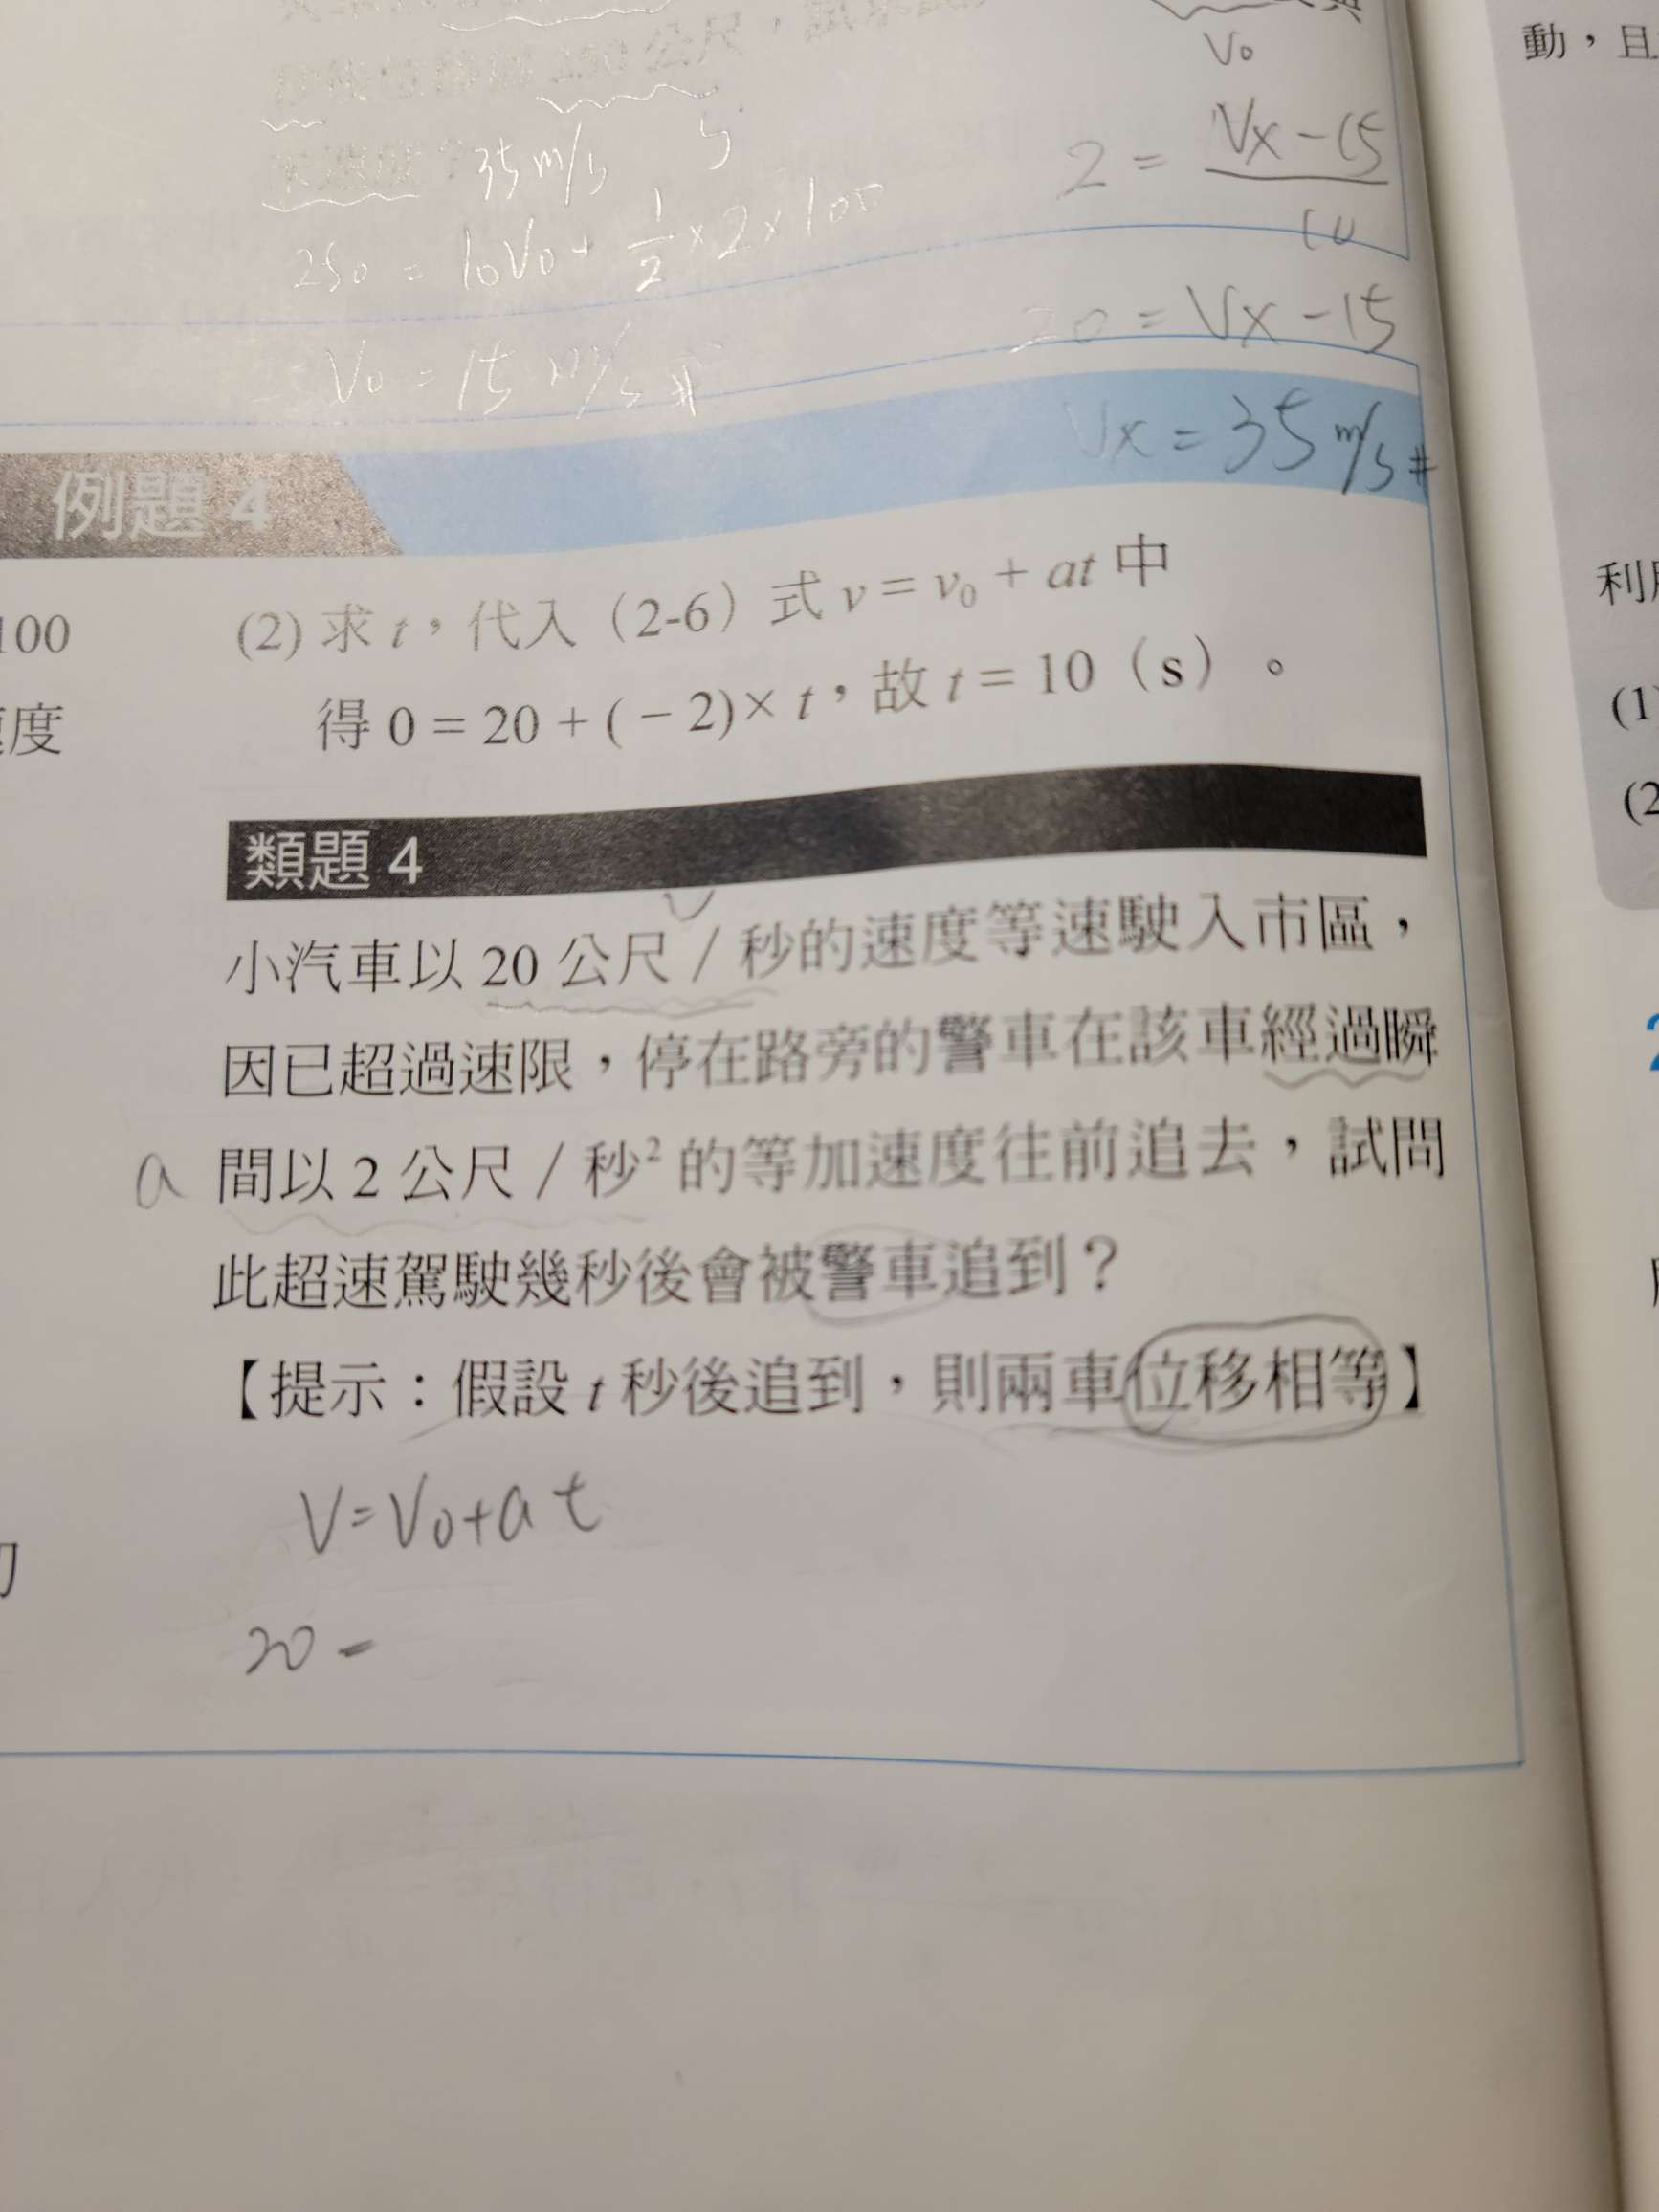 動，且
V₀
250 公尺，
35 m/s
5
2 = Vx - 15
10
250 = 10V₀ + 1/2 × 2 × 100
20 = Vx - 15
V₀ = 15 m/s #
Vx = 35 m/s #
例題 4
100
(2) 求 t，代入（2-6）式 v = v₀ + at 中
度
得 0 = 20 + ( − 2)× t，故 t = 10（s）。
(1)
(2
類題 4
小汽車以 20 公尺／秒的速度等速駛入市區，
因已超過速限，停在路旁的警車在該車經過瞬
a
間以 2 公尺／秒² 的等加速度往前追去，試問
此超速駕駛幾秒後會被警車追到？
【提示：假設 t 秒後追到，則兩車位移相等】
V = V₀ + a t
20 =